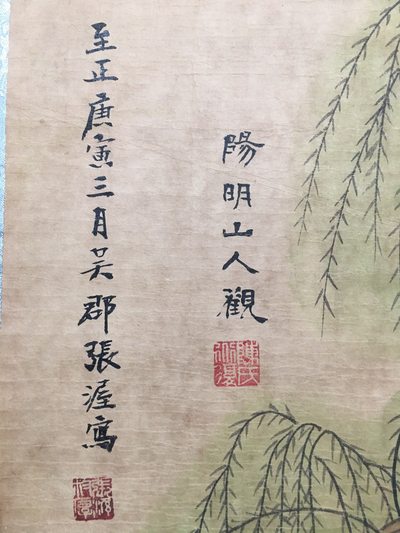 至正庚寅三月吴郡張渥寫
陽明山人觀